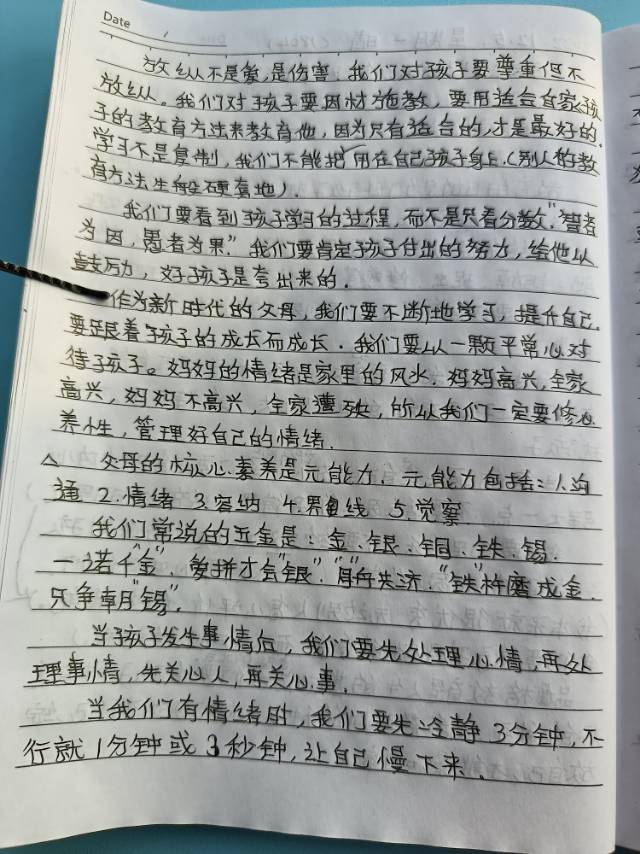 Date /
放纵不是爱,是伤害,我们对孩子要尊重但不
放纵。我们对孩子要因材施教,要用适合自家孩
子的教育方法来教育他,因为只有适合的,才是最好的.
学习不是复制,我们不能把用在自己孩子身上.(别人的教
育方法生般硬套地).
我们要看到孩子学习的过程,而不是只看分数."智者
为因,愚者为果."我们要肯定孩子付出的努力,给他以
鼓励,好孩子是夸出来的.
作为新时代的父母,我们要不断地学习,提升自己.
要跟着孩子的成长而成长.我们要以一颗平常心对
待子孩子。妈妈的情绪是家里的风水,妈妈高兴,全家
高兴,妈妈不高兴,全家遭殃,所以我们一定要修心
养性,管理好自己的情绪.
△ 父母的核心素养是元能力,元能力包括:1.沟
通 2.情绪 3.容纳 4.界线 5.觉察
我们常说的五金是:金、银、铜、铁、锡.
一诺千"金"、爱拼才会"银"."同舟共济."铁"杵磨成金.
只争朝"锡".
当孩子发生事情后,我们要先处理心情,再处
理事情,先关心人,再关心事.
当我们有情绪时,我们要先冷静 3分钟,不
行就1分钟或3秒钟,让自己慢下来.